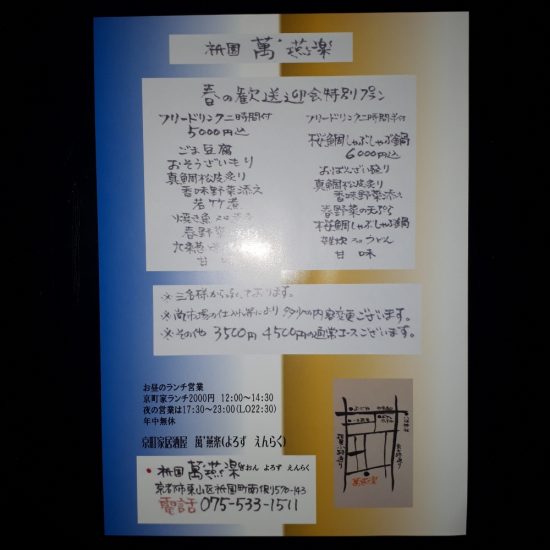 祇園 萬燕楽
春の歓送迎会特別プラン
フリードリンク二時間付
5000円込
ごま豆腐
おそうざいもり
真鯛松皮炙り
香味野菜添え
若竹煮
焼き魚
春野菜
九条葱
甘
フリードリンク二時間半付
桜鯛しゃぶしゃぶ鍋
6000円込
おばんざい盛り
真鯛松皮炙り
香味野菜添え
春野菜の天ぷら
桜鯛しゃぶしゃぶ鍋
雑炊 うどん
甘味
※三名様から
※市場の仕入れ等により 多少の内容変更ございます。
※その他 3500円 4500円の通常コースございます。
お昼のランチ営業
京町家ランチ2000円 12:00～14:30
夜の営業は17:30～23:00(LO22:30)
年中無休
京町家居酒屋 萬燕楽(よろず えんらく)
・祇園 萬燕楽 ぎおん よろず えんらく
京都市東山区祇園町南側570-143
電話 075-533-1511